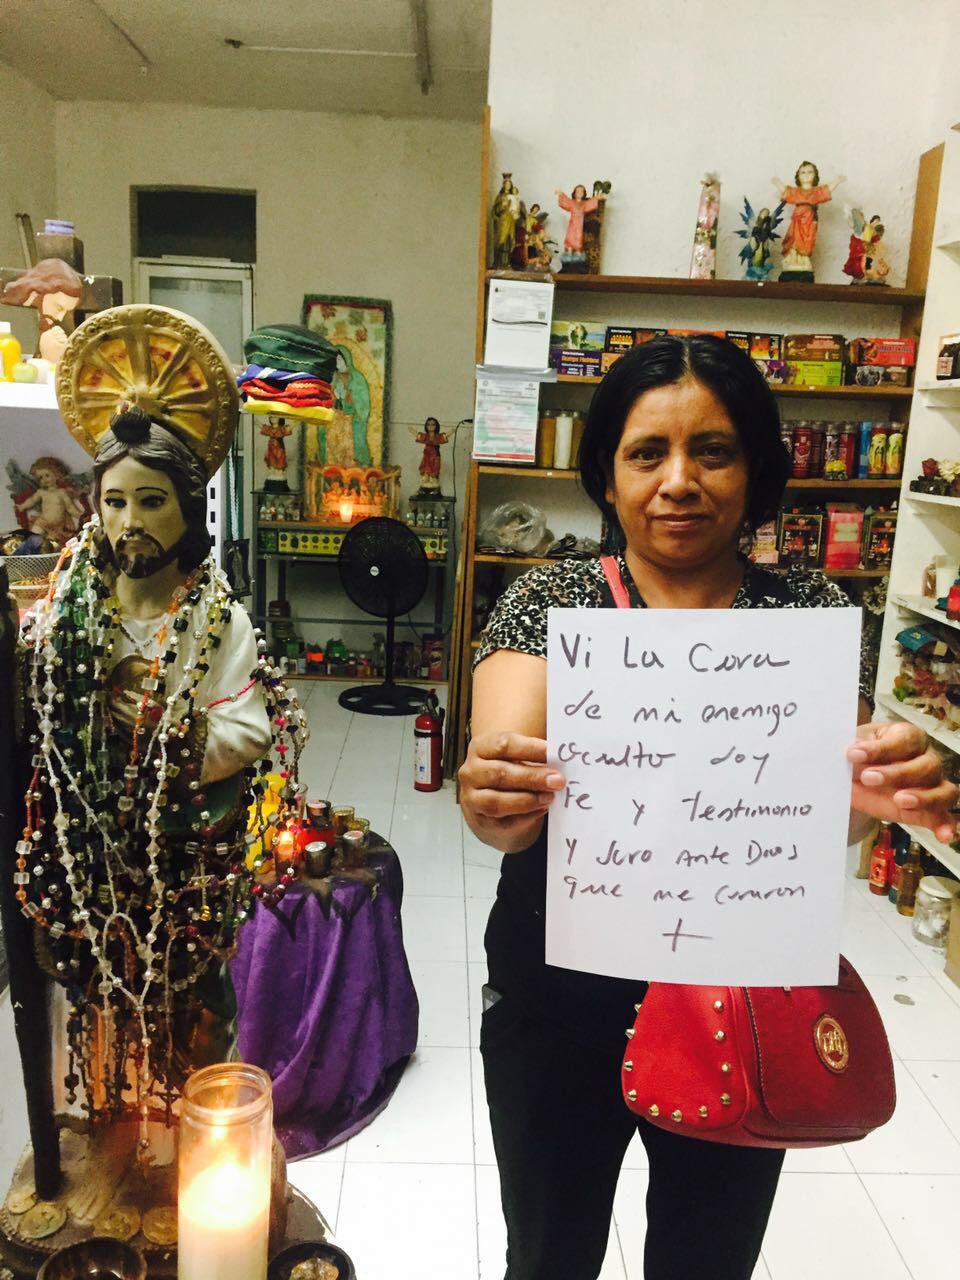 Vi La Cara
de mi enemigo
oculto doy
Fe y Testimonio
Y Juro Ante Dios
que me curaron